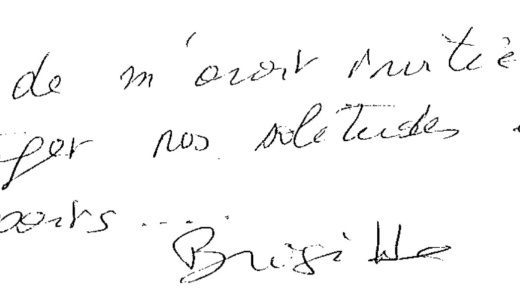 de m'avoir invitée
ger nos solitudes
oirs ....
Brigitte